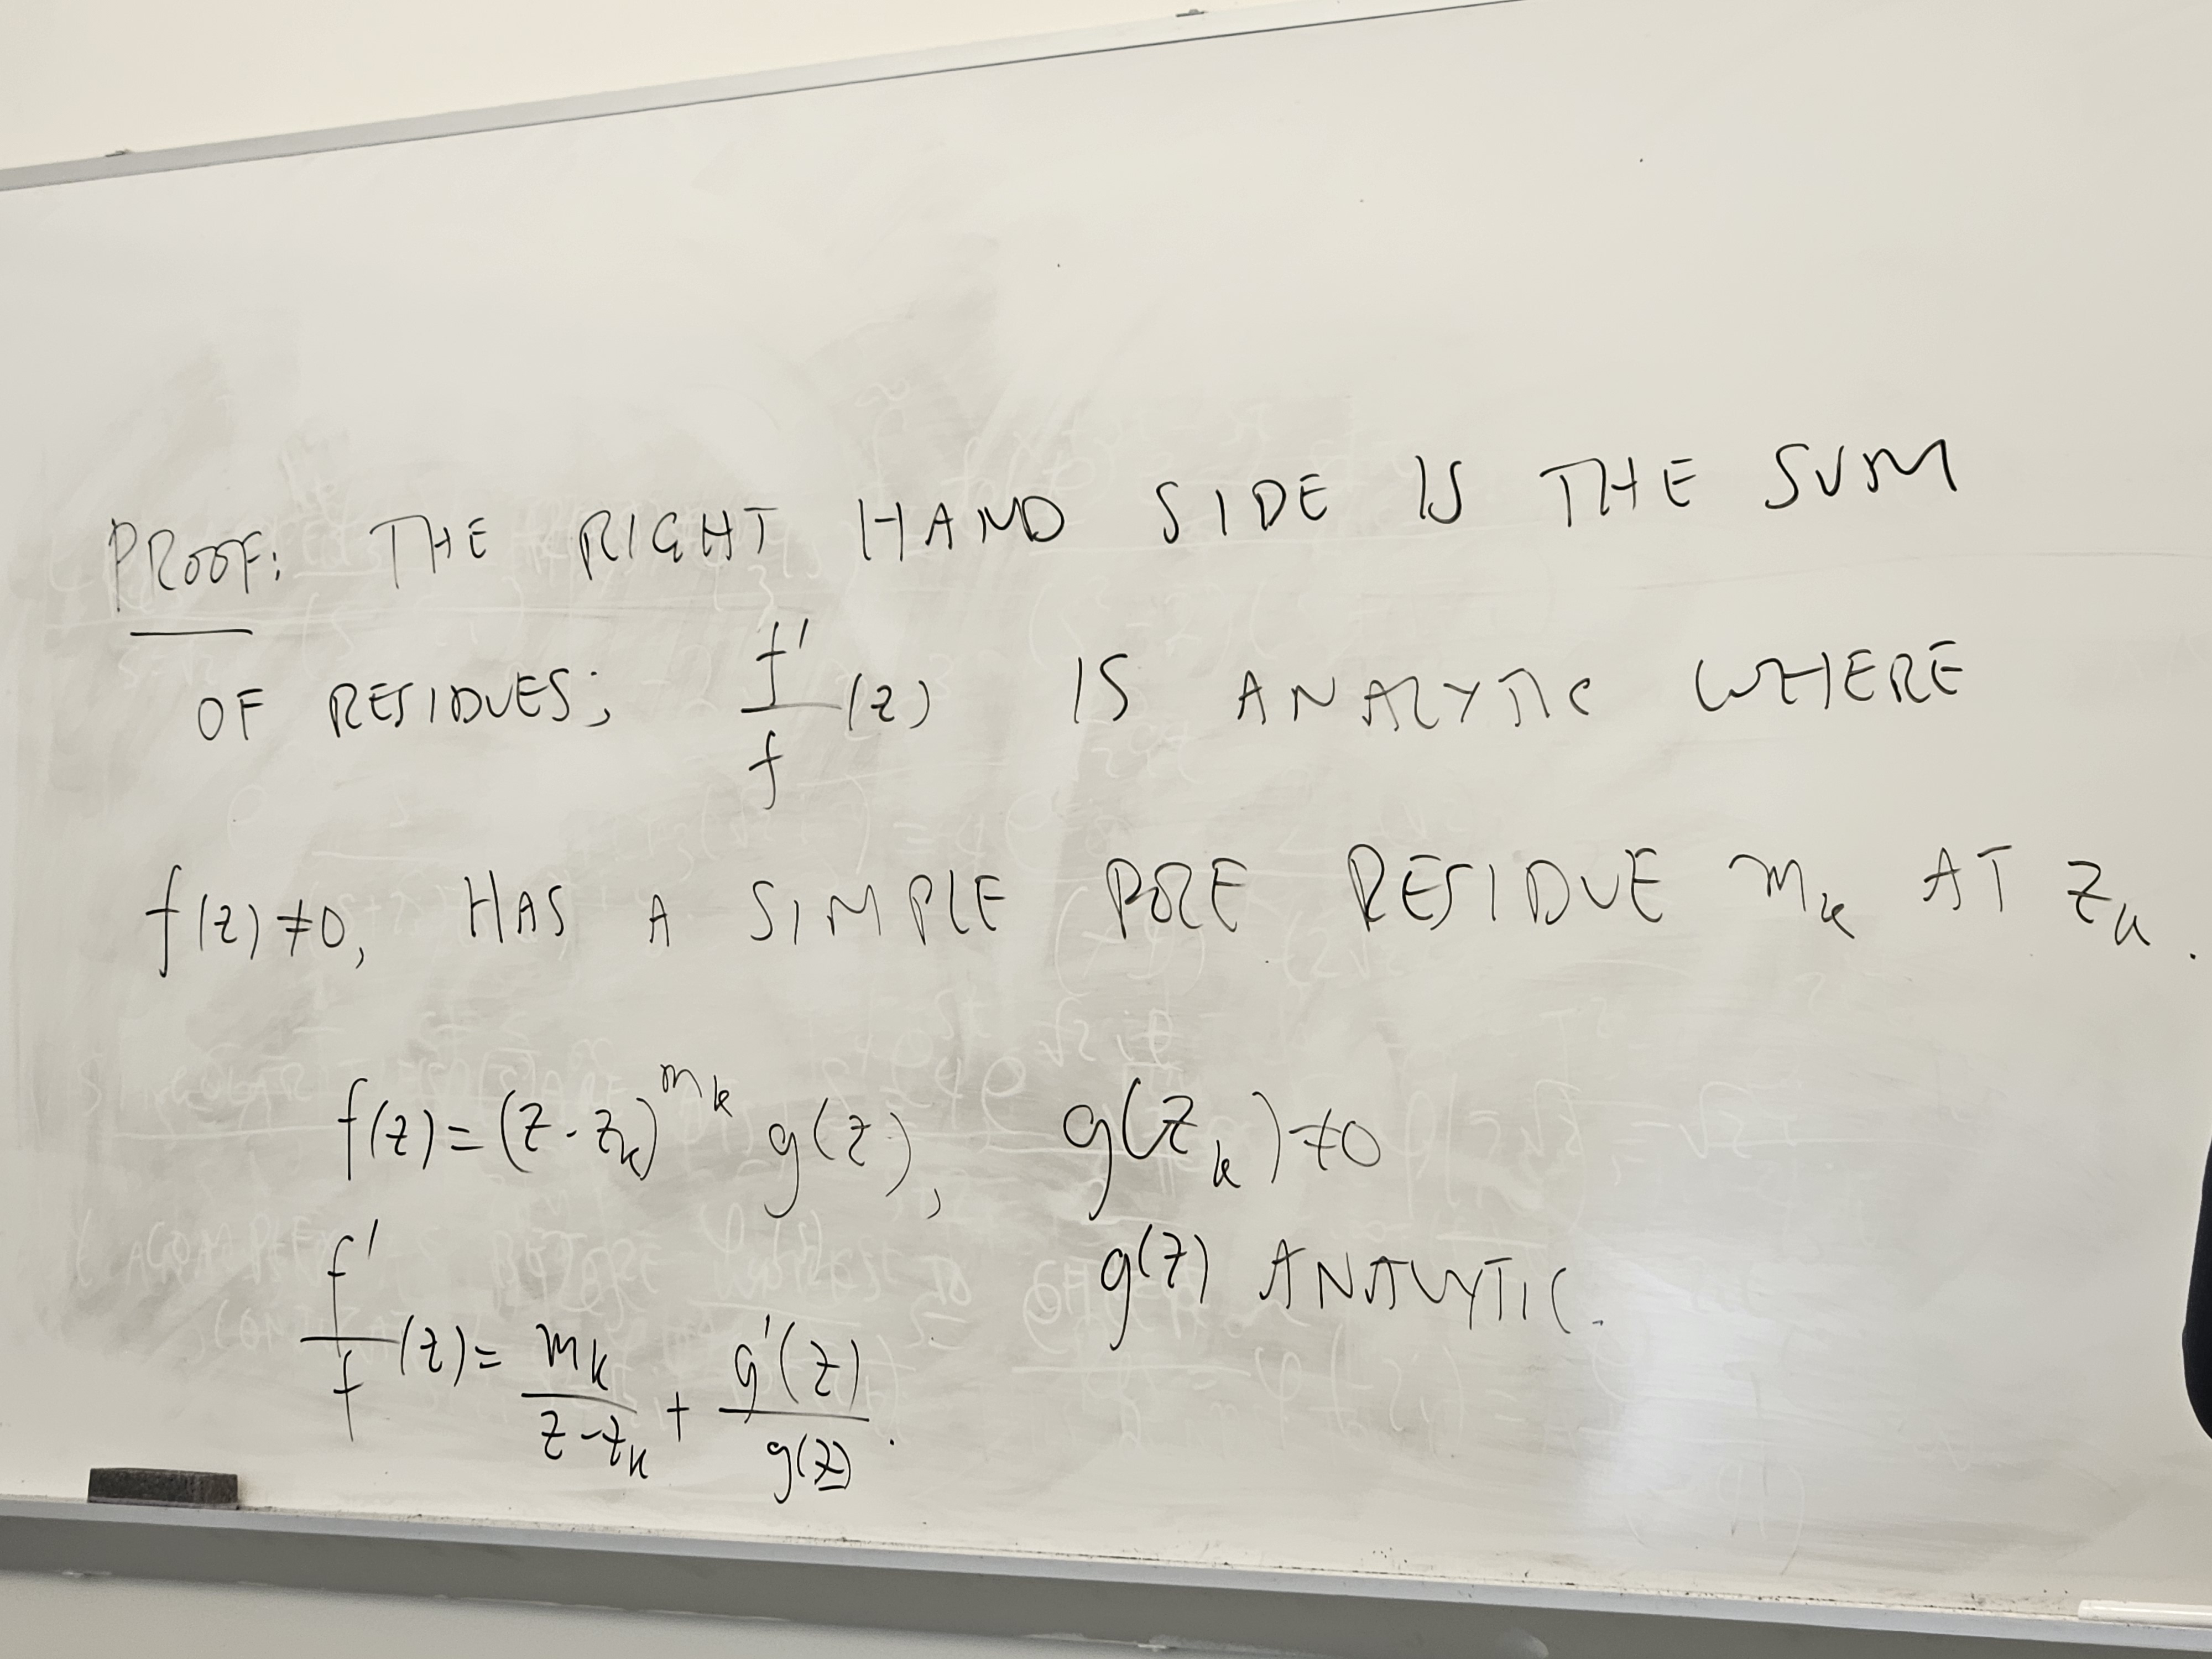 PROOF: THE RIGHT HAND SIDE IS THE SUM
OF RESIDUES; f'/f (z) IS ANALYTIC WHERE
f(z)≠0, HAS A SIMPLE POLE RESIDUE m_k AT z_k.
f(z)=(z-z_k)^{m_k} g(z), g(z_k)≠0
g(z) ANALYTIC.
f'/f (z)= m_k/(z-z_k) + g'(z)/g(z).